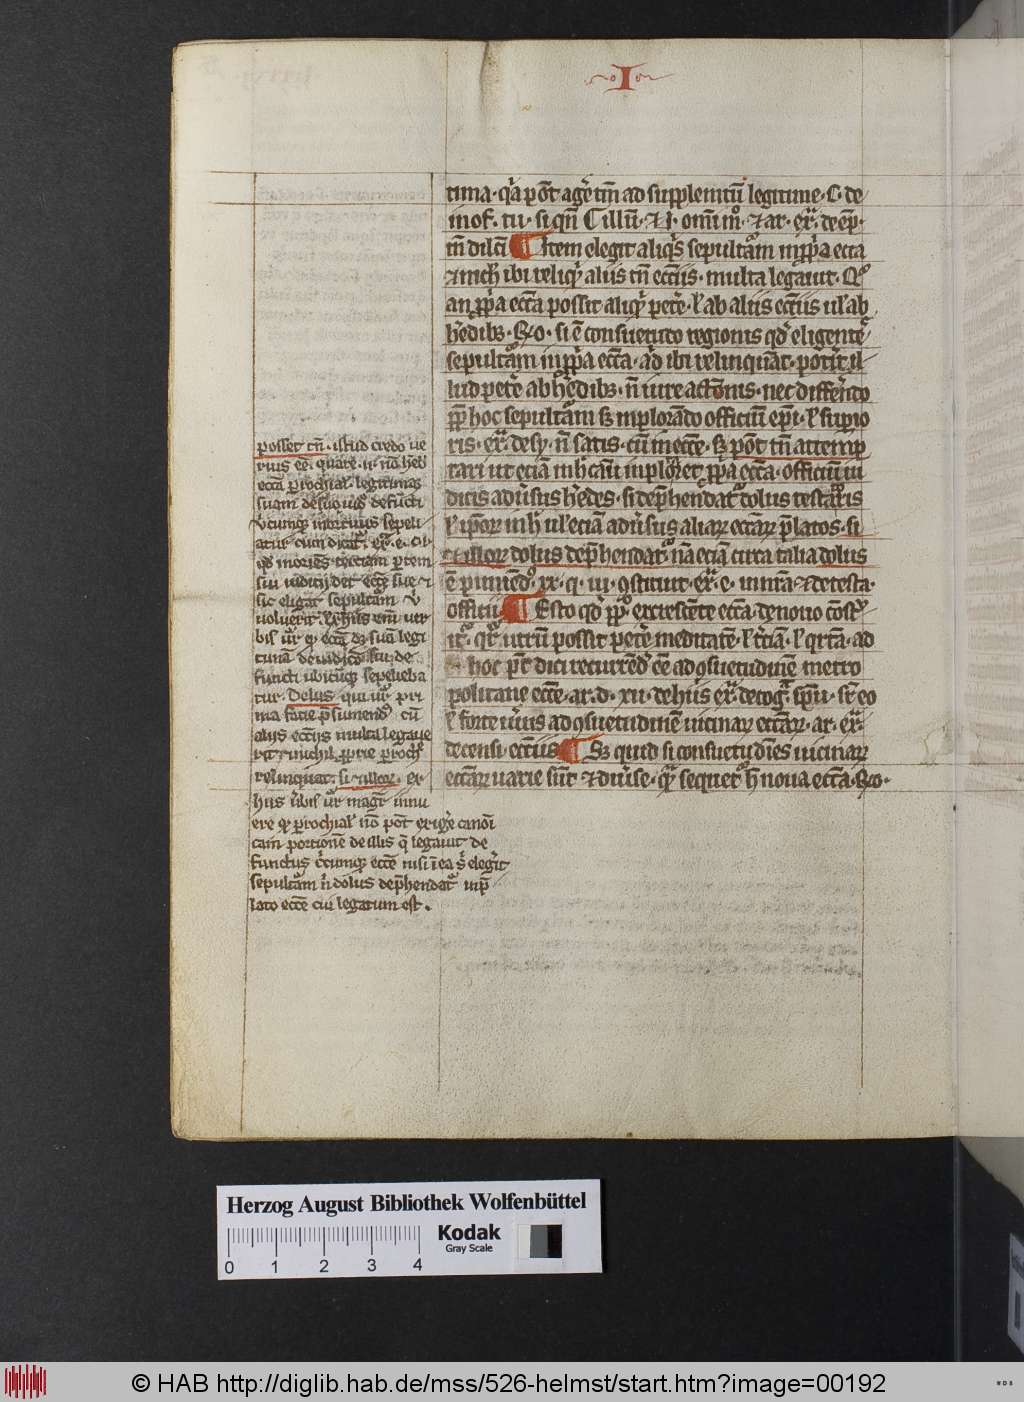 I
tima· qͥa pōt agͤe tm̄ ad supplemtū legitime· C· de
inof· tu· si qn̄ Cillū· ⁊ J· om̄i mº ⁊ ar· ex̄ de ep̄·
m̄ dilc̄i ¶ Item elegit aliqͥs sepultᷓam in ꝓpͥa ecc̄a
⁊ nich̄ ibi reliqͥt aliis tn̄ ecc̄iis· multa legauit· Qº
an ꝓpͥa ecc̄a possit aliqͥd petͤe· ł ab aliis ecc̄iis uł ab
h̄edibꝫ· So· si ē consuetuto regionis qd̓ eligentes
sepultᷓam in ꝓpͥa ecc̄a· ad ibi relinquāt· potit il-
lud petͤe ab h̄edibꝫ· n̄ iure actōnis· nec differēto
ꝓpt̄ hoc sepultᷓam sꝫ inplorādo officiū ep̄i· ł supio
ris· ex̄ de sy· n̄ satis· cū in ecc̄e· sꝫ pōt tn̄ attemp
tari ut ecia in h̄ cā inploret ꝓpͥa ecc̄a· officiū iu
dicis adūsus h̄edes· si dep̄hendatᷓ dolus testatᷓis
ł ip̄oꝝ in h̄ uł eciā adūsus aliaꝝ ecc̄aꝝ p̄latos· si
⁊ illoꝝ dolus dep̄hendatᷓ nā eciā circa talia dolus
ē puniēdº xx· q· iii· ꝯstituit ex̄· e· in nr̄a· ⁊ de testa·
officii ¶ Esto qd̓ ꝓpº excrescēte ecc̄a de nouo cōst
itͣ· qͬ utrū possit petͤe medietatē· ł tͬciā· ł qͬtā· ad
hoc pt̄ dici recurrēd̓ ēē ad ꝯsuetudinē metro
politane ecc̄e· ar· d· xii· de hiis ex̄ de cogͣ· spūi· sr̄ eo
ł forte uͬius ad ꝯsuetudinē uicinaꝝ ecc̄aꝝ· ar· ex̄·
de censi· ecc̄iis ¶ Sꝫ quid si consuetudīes uicinaꝝ
ecc̄aꝝ uarie sūt ⁊ diūse· qͣ sequetͬ h̄ noua ecc̄a· So·
posset tn̄· istud credo ue
rius eē· quare· n̄ nō h̄eb
ecc̄a ꝑrochial· legitimā
suam de suo iuͥ defūcti
ūcumqꝫ mortuus sepeli-
atur cum dicatᷓ· ex̄· e· c̄ li·
qd̓ moriēs terciam ꝑtem
sui iudicii det ecc̄e sue ⁊
sic eligat sepultᷓam ū
uoluerit· ex hiis em̄ uer
bis ur̄ qꝫ ecc̄a dꝫ suā legi
timā de iudicio siu· de
functi ubicūqꝫ sepelieba
tur· Dolus qui ur̄ pri
ma facie p̄sumendº cū
aliis ecc̄iis multa legaue
rit ⁊ nichil ꝓprie ꝑrochͥ
relinquat· si ⁊ illoꝝ· ex
hiis ūbis ur̄ magr̄ innu
ere qꝫ ꝑrochial· nō pōt exigͤe canōi
cam portionem de illis q̄ legauit de
functus ūcumqꝫ ecc̄e nisi ī ea s̄ elegͤit
sepultᷓam n̄ dolus dep̄hendatᷓ in p̄
lato ecc̄e cui legatum est·
Herzog August Bibliothek Wolfenbüttel
Kodak
Gray Scale
0 1 2 3 4
© HAB http://diglib.hab.de/mss/526-helmst/start.htm?image=00192